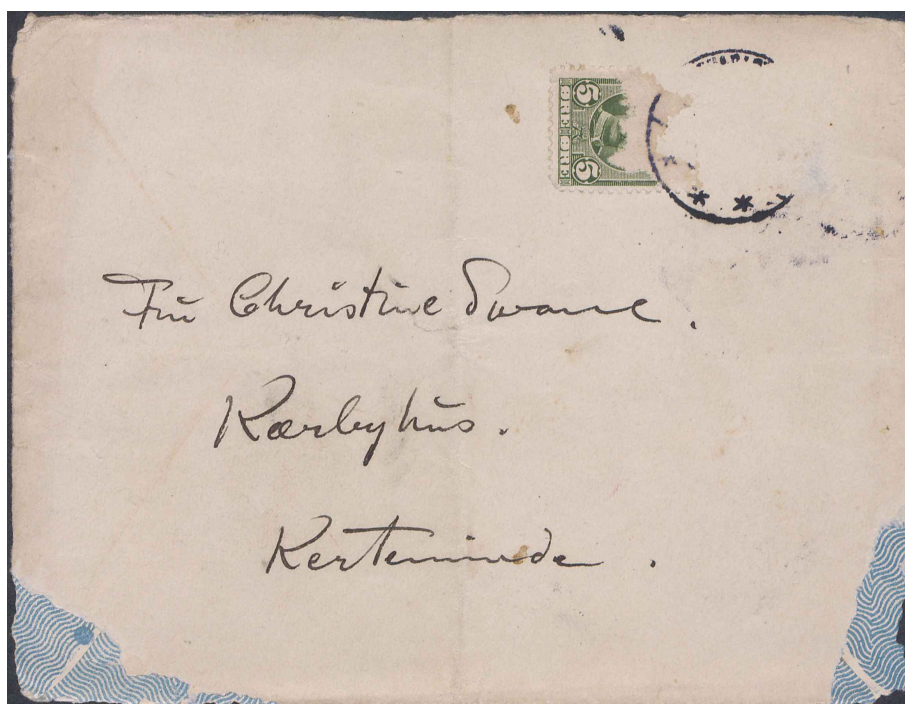 5 ØRE ØRE 5
Fru Christine Swane.
Kærbyhus.
Kerteminde.